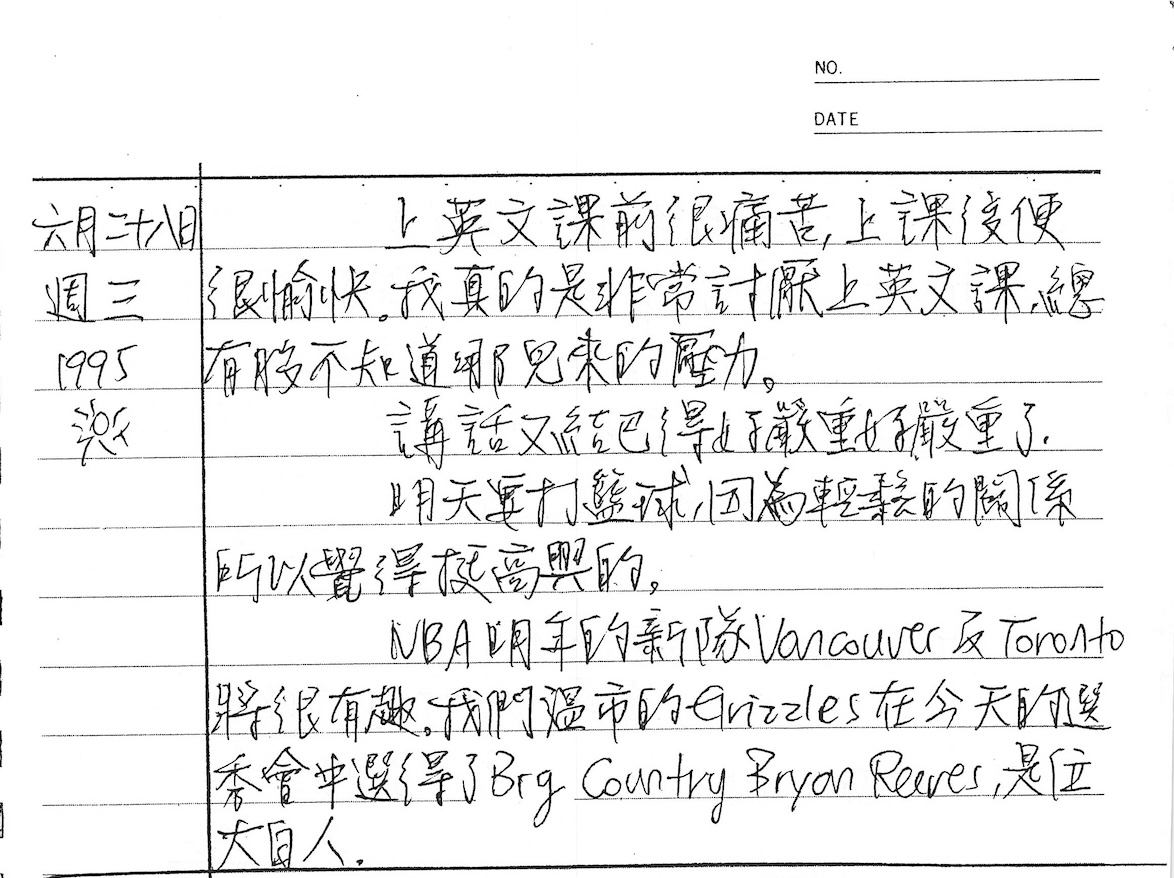 NO.
DATE
六月二十八日
週三
1995
上英文課前很痛苦,上課後便
很愉快。我真的是非常討厭上英文課,總
有股不知道哪兒來的壓力。
講話又結巴得好嚴重好嚴重了.
明天要打籃球,因為輕鬆的關係
所以覺得挺高興的。
NBA明年的新隊Vancouver及Toronto
將很有趣。我們溫市的Grizzles在今天的選
秀會中選得了Big Country Bryan Reeves,是位
大白人.